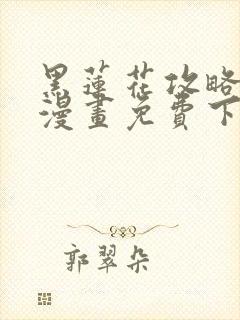 黑蓮花攻略
漫畫免費下
郭翠朵